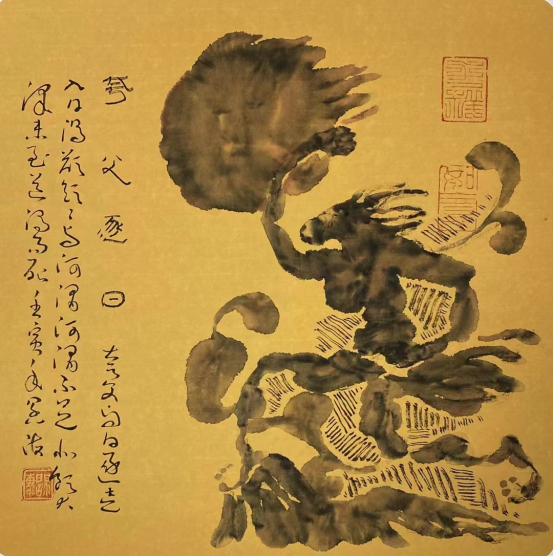 夸父逐日 夸父与日逐走
入日渴欲饮〻于河渭河渭不足北饮大
泽未至道渴而死 壬寅年